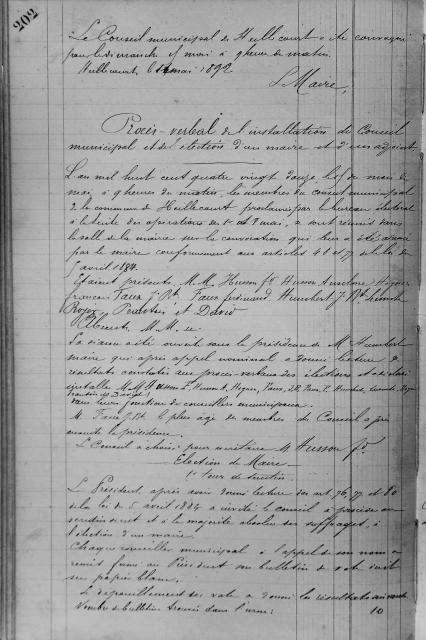 202
Le Conseil municipal de Huillécourt a été convoqué
pour le dimanche mai à 9 heures du matin.
Huillécourt, mai 1892
Le Maire,
Procès-verbal de l'installation du Conseil
municipal et des élection d'un maire et d'un adjoint
L'an mil huit cent quatre vingt douze, le de mois de
mai, à 9 heures du matin, les membres du conseil municipal
de la commune de Huillécourt proclamés par le bureau électoral
à la suite des opérations du 1er et 8 mai, se sont réunis dans
la salle de la mairie sur la convocation qui leur a été
par le maire conformément aux articles 48 et 77 de la loi du
5 avril 1884.
Étaient présents M.M. Husson fd Husson Anselme,
françois Faux J. Bte, Faux ferdinand Humbert J. Bte
Roger et David
Absents M.M. "
La séance a été ouverte sous la présidence de M. Humbert
maire qui après appel nominal a donné lecture des
résultats constatés aux procès-verbaux des élections et a déclaré
installer M.M. Husson
dans leurs fonction de conseillers municipaux.
M. Faux J. Bt. le plus âgé des membres du Conseil a pris
ensuite la présidence.
Le Conseil a choisi pour secrétaire M. Husson fd.
Élection du Maire
1er tour de scrutin
Le Président, après avoir donné lecture des art. 76, 77 et 80
de la loi du 5 avril 1884 a invité le conseil à procéder au
scrutin secret et à la majorité absolue des suffrages, à
l'élection d'un maire.
Chaque conseiller municipal à l'appel de son nom a
remis fermé au Président un bulletin de vote écrit
sur papier blanc.
Le dépouillement des vote a donné les résultats suivants
Nombre de bulletins trouvés dans l'urne: 10